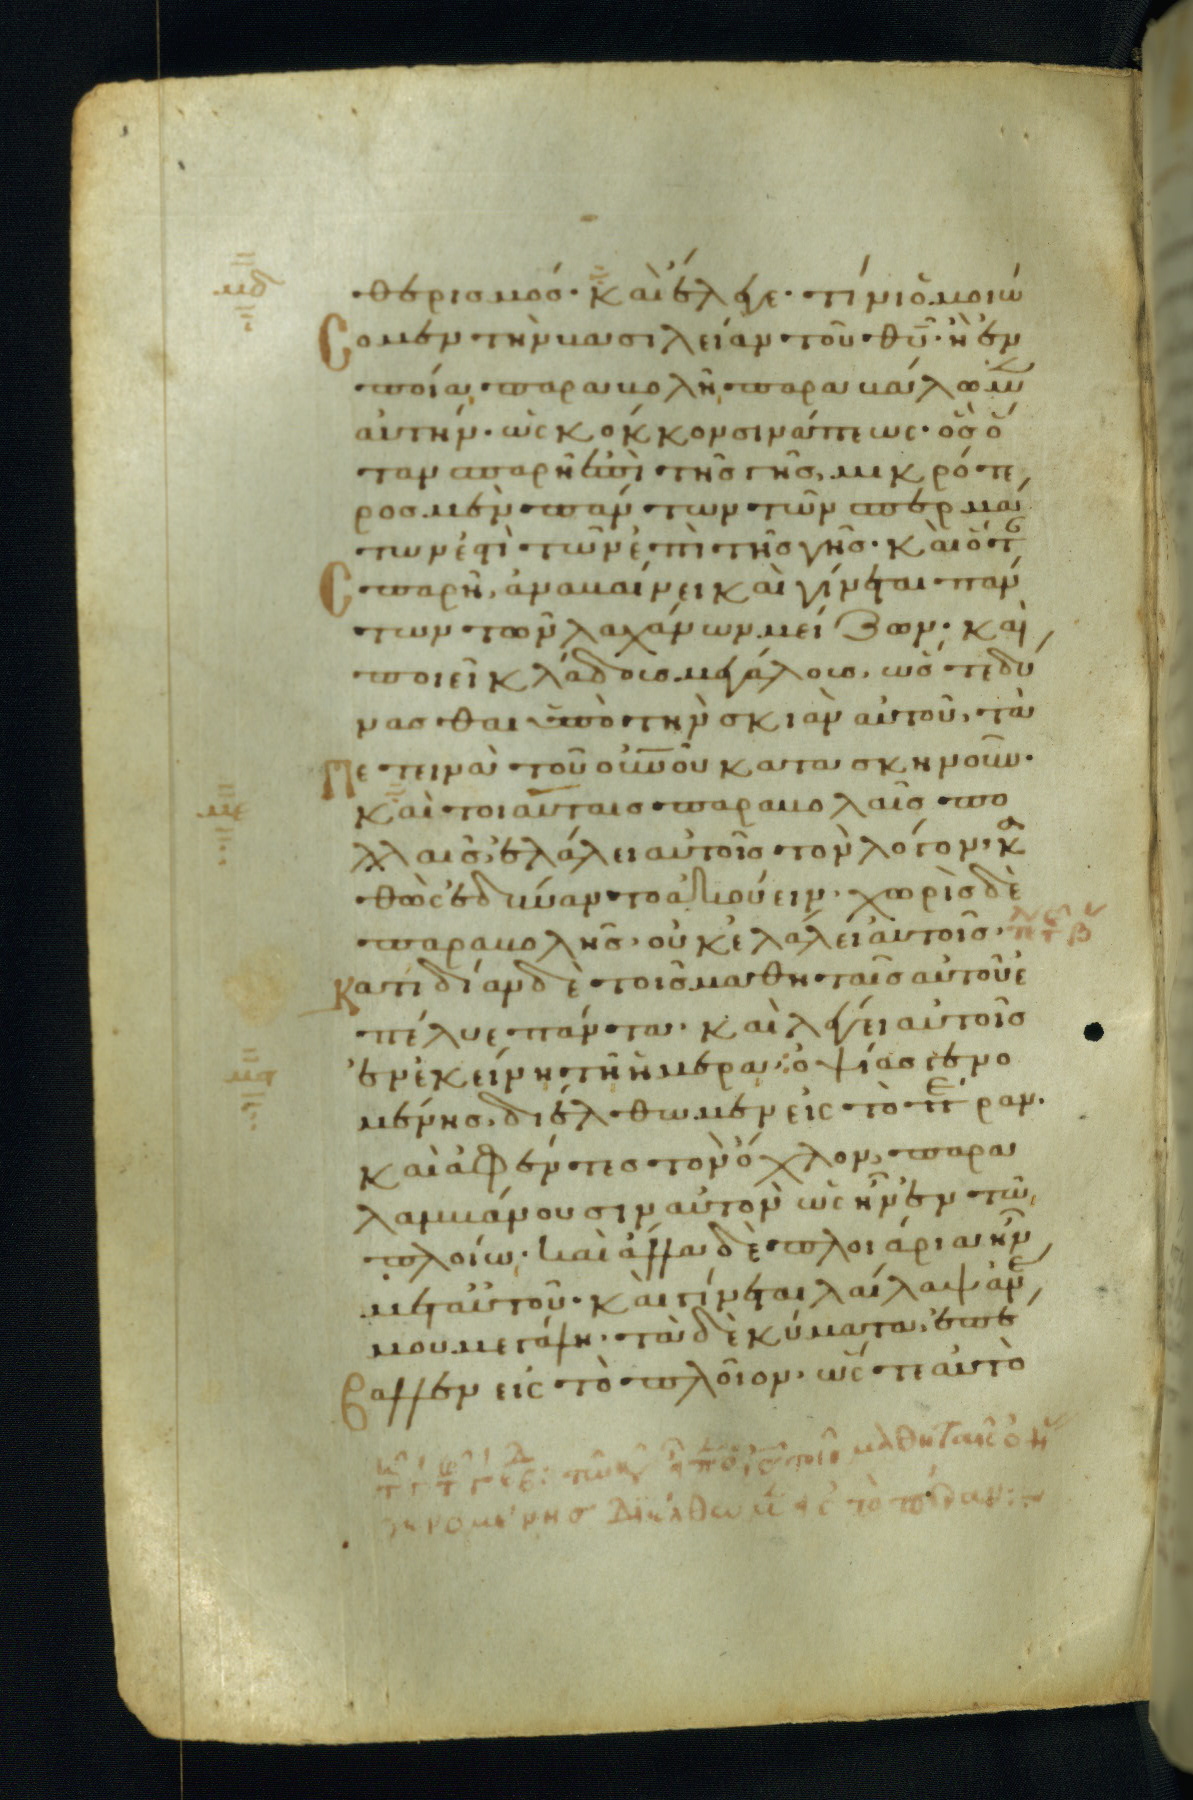 μδ
ὁ θερισμός· καὶ ἔλεγε· τίνι ὁμοιώ
σομεν τὴν βασιλείαν τοῦ θῦ· ἢ ἐν
ποία παραβολῆ παραβάλωμεν
αὐτήν· ὡς κόκκον σινάπεως· ὃς ὅ
ταν σπαρῆ ἐπὶ τῆς γῆς, μικρότε
ρος μὲν πάντων τῶν σπερμά
των ἐστὶ τῶν ἐπὶ τῆς γῆς· καὶ ὅτ
σπαρῆ, ἀναβαίνει καὶ γίνεται πάν
των τῶν λαχάνων μείζων· καὶ
ποιεῖ κλάδους μεγάλους, ὥστε δύ
νασθαι ὑπὸ τὴν σκιὰν αὐτοῦ, τὰ
πετεινὰ τοῦ οὐνοῦ κατασκηνοῦν·
με
καὶ τοιαύταις παραβολαῖς πο
λλαῖς, ἐλάλει αὐτοῖς τὸν λόγον, κα
θὼς ἐδύναντο ἀκούειν· χωρὶς δὲ
παραβολῆς· οὐκ ἐλάλει αὐτοῖς·
κατιδίαν δὲ τοῖς μαθηταῖς αὐτοῦ ἐ
πέλυε πάντα· καὶ λέγει αὐτοῖς
μϛ
ἐν ἐκείνη τῆ ἡμέρα· ὀψίας γενο
μένης, διέλθωμεν εἰς τὸ πέραν·
καὶ ἀφέντες τὸν ὄχλον, παρα
λαμβάνουσιν αὐτὸν ὡς ἦν ἐν τῶ
πλοίω· καὶ ἄλλα δὲ πλοιάρια ἦν
μεταὐτοῦ· καὶ γίνεται λαίλαψ ἀνέ
μου μεγάλη· τὰ δὲ κύματα, ἐπέ
βαλλεν εἰς τὸ πλοῖον, ὥστε αὐτὸ
μαθηταῖς
γενομένης διέλθωμεν εἰς τὸ πέραν: